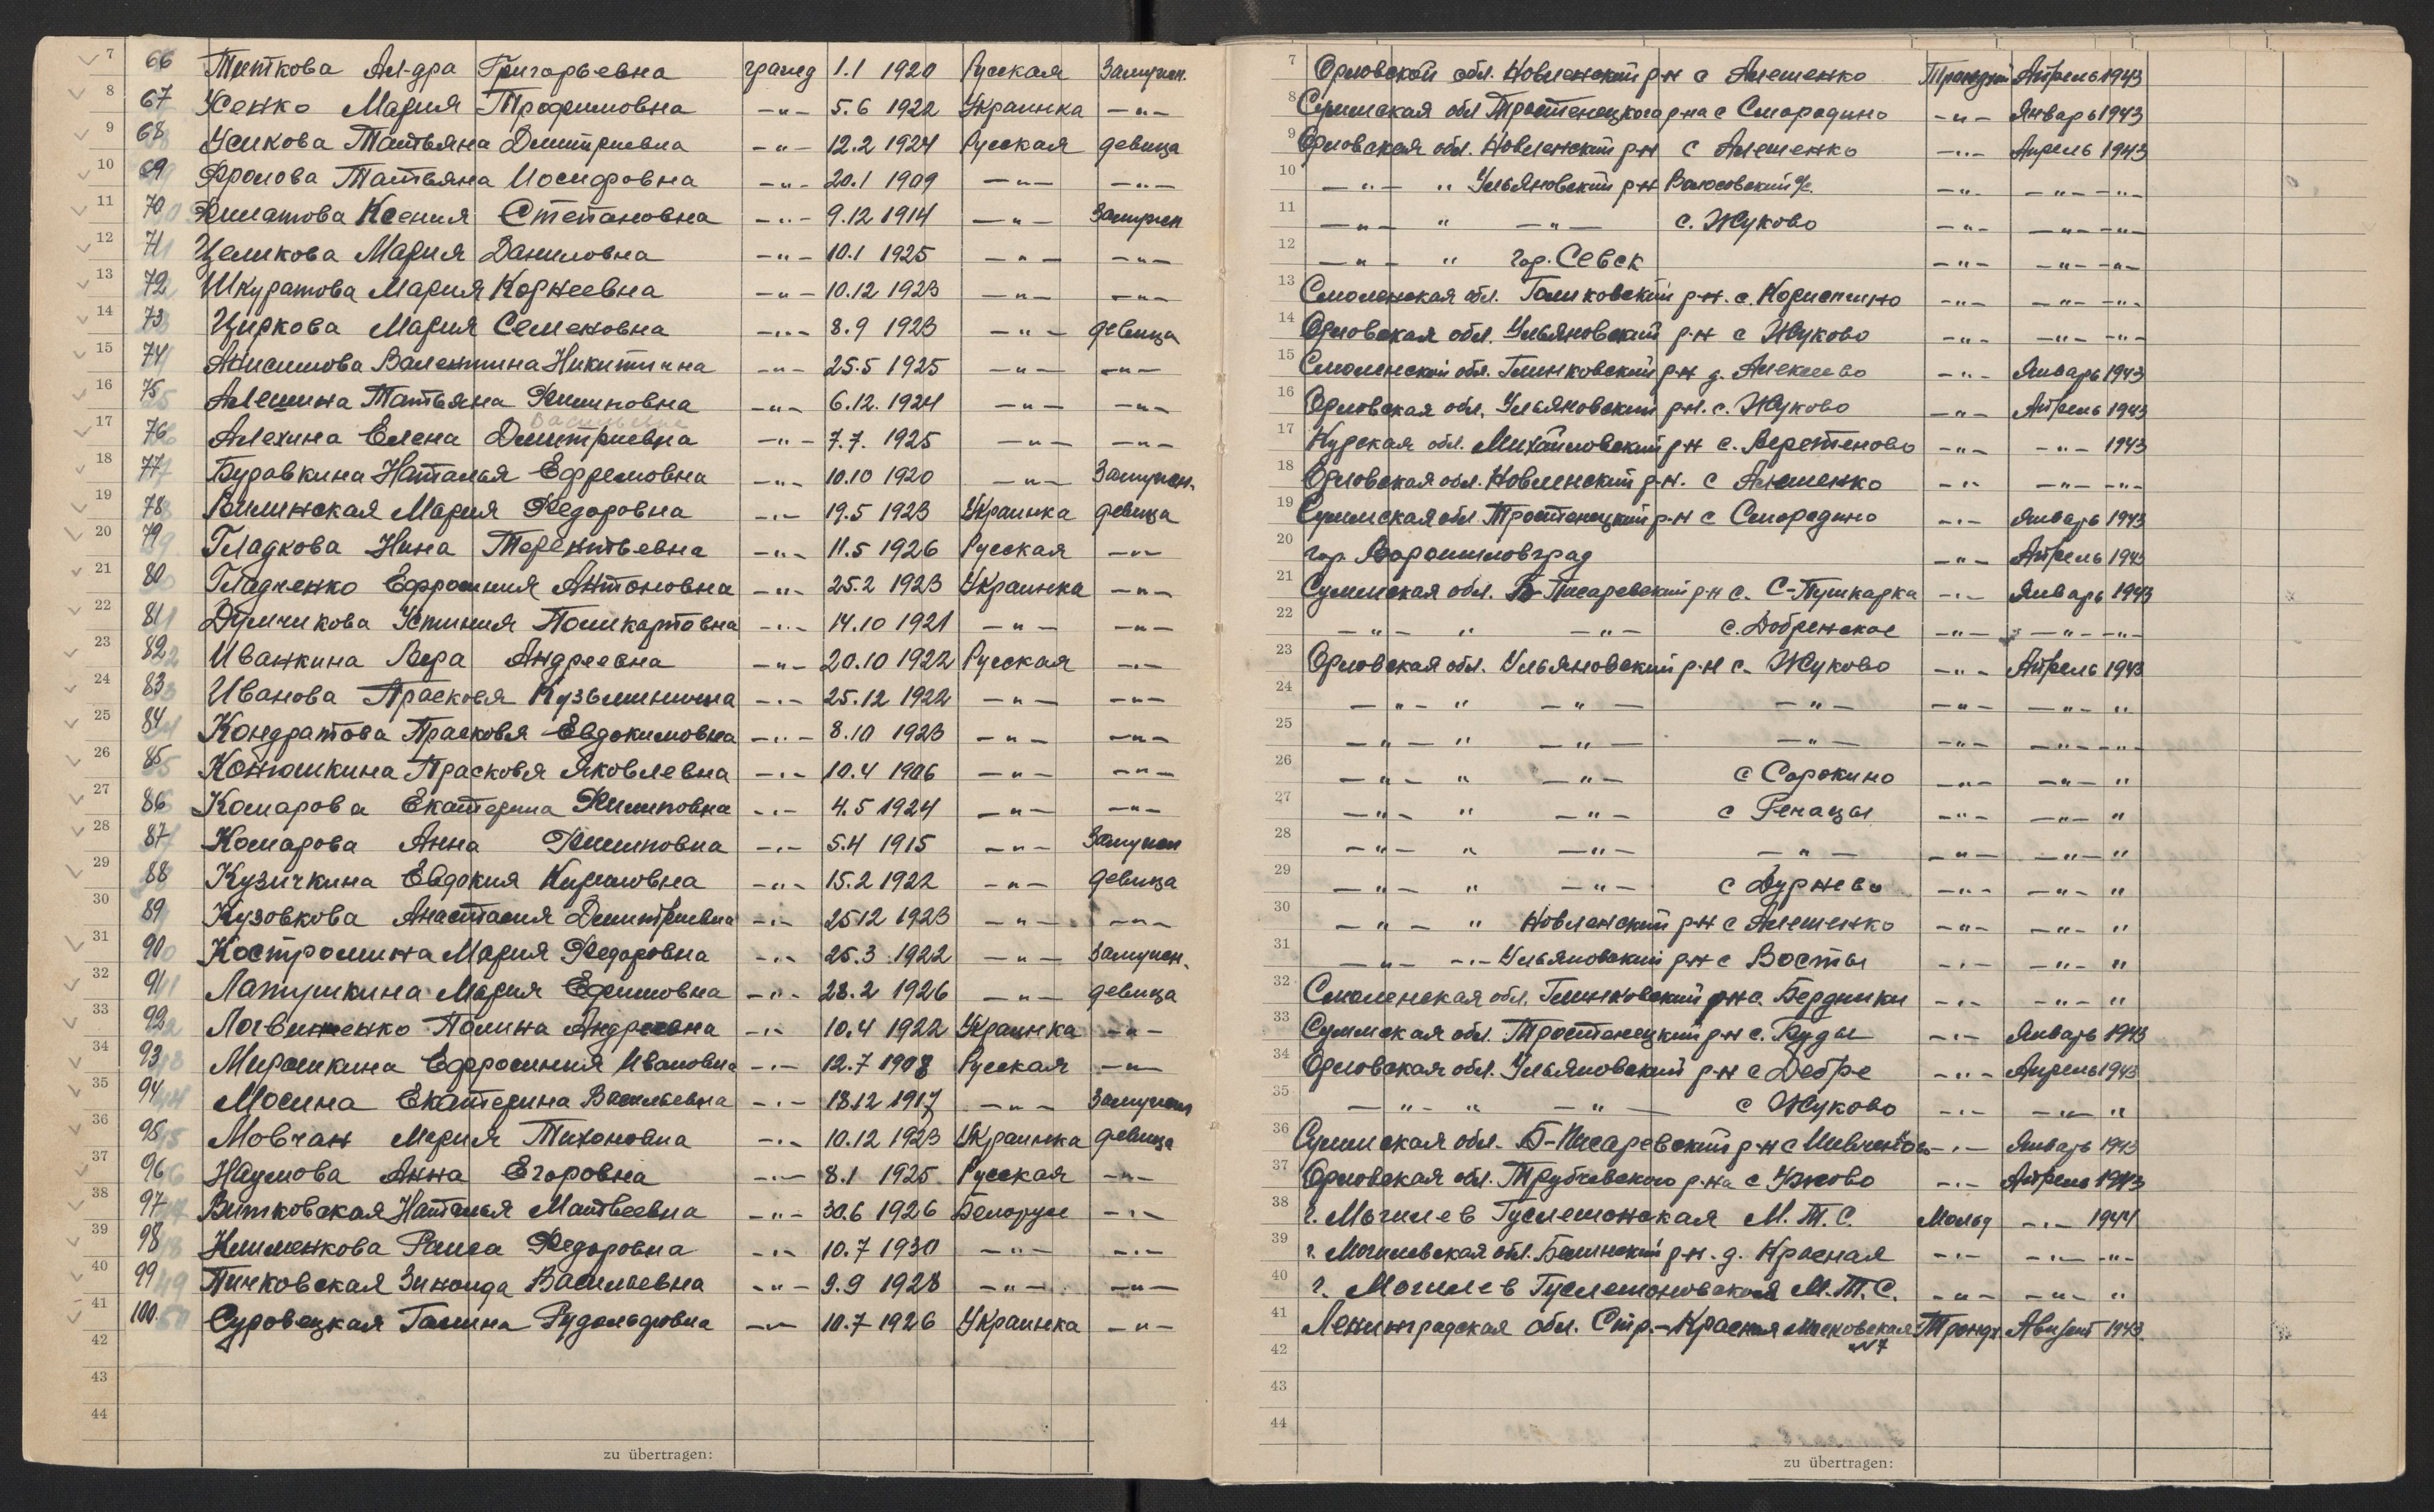 7 66 Титкова Ал-дра Григорьевна гражд 1.1 1920 Русская Замужем.
8 67 Усенко Мария Трофимовна —„— 5.6 1922 Украинка —„—
9 68 Усикова Татьяна Дмитриевна —„— 12.2 1924 Русская девица
10 69 Фролова Татьяна Иосифовна —„— 20.1 1909 —„— —„—
11 70 Филатова Ксения Степановна —„— 9.12 1914 —„— Замужем
12 71 Целикова Мария Даниловна —„— 10.1 1925 —„— —„—
13 72 Шкуратова Мария Корнеевна —„— 10.12 1923 —„— —„—
14 73 Циркова Мария Семеновна —„— 8.9 1923 —„— девица
15 74 Анисимова Валентина Никитична —„— 25.5 1925 —„— —„—
16 75 Алешина Татьяна Филиповна —„— 6.12. 1924 —„— —„—
17 76 Алехина Елена Дмитриевна —„— 7.7. 1925 —„— —„—
18 77 Буравкина Наталья Ефремовна —„— 10.10 1920 —„— Замужем.
19 78 Вилинская Мария Федоровна —„— 19.5 1923 Украинка девица
20 79 Гладкова Нина Терентьевна —„— 11.5 1926 Русская —„—
21 80 Гладченко Ефросиния Антоновна —„— 25.2 1923 Украинка —„—
22 81 Думчикова Устиния Поликарповна —„— 14.10 1921 —„— —„—
23 82 Иванкина Вера Андреевна —„— 20.10 1922 Русская —„—
24 83 Иванова Прасковя Кузьминична —„— 25.12 1922 —„— —„—
25 84 Кондратова Прасковя Евдокимовна —„— 8.10 1923 —„— —„—
26 85 Конюшкина Прасковя Яковлевна —„— 10.4 1906 —„— —„—
27 86 Комарова Екатерина Филиповна —„— 4.5 1924 —„— —„—
28 87 Комарова Анна Филиповна —„— 5.4 1915 —„— Замужем
29 88 Кузичкина Евдокия Кириловна —„— 15.2 1922 —„— девица
30 89 Кузовкова Анастасия Дмитриевна —„— 25 12 1923 —„— —„—
31 90 Костромина Мария Федоровна —„— 25.3 1922 —„— Замужем.
32 91 Лапушкина Мария Ефимовна —„— 28.2 1926 —„— девица
33 92 Логвиненко Полина Андреевна —„— 10.4 1922 Украинка —„—
34 93 Мирошкина Ефросиния Ивановна —„— 12.7 1908 Русская —„—
35 94 Мосина Екатерина Васильевна —„— 18.12 1917 —„— Замужем
36 95 Мовчан Мария Тихоновна —„— 10.12 1923 Украинка девица
37 96 Наумова Анна Егоровна —„— 8.1 1925 Русская —„—
38 97 Витковская Наталья Матвеевна —„— 30.6 1926 Белорус —„—
39 98 Клименкова Раиса Федоровна —„— 10.7 1930 —„— —„—
40 99 Пинковская Зинаида Васильевна —„— 9.9 1928 —„— —„—
41 100. Суровецкая Галина Рудольфовна —„— 10.7 1926 Украинка —„—
42
43
44
zu übertragen:
7 Орловской обл. Новленский р-н с Алешенко Апрель 1943
8 Суммская обл Тростенецкого р-на с Смородино —„— Январь 1943
9 Орловская обл. Новленский р-н с Алешенко —„— Апрель 1943
10 —„— „ Ульяновский р-н —„— —„— —„—
11 —„— „ —„— с. Жуково —„— —„— —„—
12 —„— „ гор. Севск —„— —„— —„—
13 Смоленская обл. р-н. с. —„— —„— —„—
14 Орловская обл. Ульяновский р-н с Жуково —„— —„— —„—
15 Смоленской обл. Глинковский р-н д. Алексеево —„— Январь 1943
16 Орловская обл. Ульяновский р-н. с. Жуково —„— Апрель 1943
17 Курская обл. Михайловский р-н с. Веретеново —„— —„— 1943
18 Орловская обл. Новленский р-н. с Алешенко —„— —„— —„—
19 Суммская обл Тростенецкий р-н с Смородино —„— Январь 1943
20 гор. Ворошиловград —„— Апрель 1943
21 Суммская обл. Б-Писаревский р-н с. С-Пушкарка —„— Январь 1943
22 —„— „ —„— с. Добренское —„— —„— —„—
23 Орловская обл. Ульяновский р-н с. Жуково —„— Апрель 1943
24 —„— „ —„— —„— —„— —„— „
25 —„— „ —„— —„— —„— —„— —„—
26 —„— „ —„— с Сорокино —„— —„— „
27 —„— „ —„— с Речицы —„— —„— „
28 —„— „ —„— —„— —„— —„— „
29 —„— „ —„— с Дурнево —„— —„— „
30 —„— „ Новленский р-н с Алешенко —„— —„— „
31 —„— —„— Ульяновский р-н с Восты —„— —„— „
32 Смоленская обл. Глинковский р-н с. Бердники —„— —„— „
33 Суммская обл. Тростенецкий р-н с. Буды —„— Январь 1943
34 Орловская обл. Ульяновский р-н с Дебре —„— Апрель 1943
35 —„— „ —„— с Жуково —„— —„— „
36 Суммская обл. Б-Писаревский р-н с —„— Январь 1943
37 Орловская обл. Трубчевского р-на с Ужово —„— Апрель 1943
38 г. Могилев М.Т.С. Мольд —„— 1944
39 г. Могилевская обл. р-н. д. Красная —„— —„— —„—
40 г. Могилев М.Т.С. —„— —„— „
41 Ленинградская обл. Стр.-Красная Московская Август 1943
№7
42
43
44
zu übertragen: